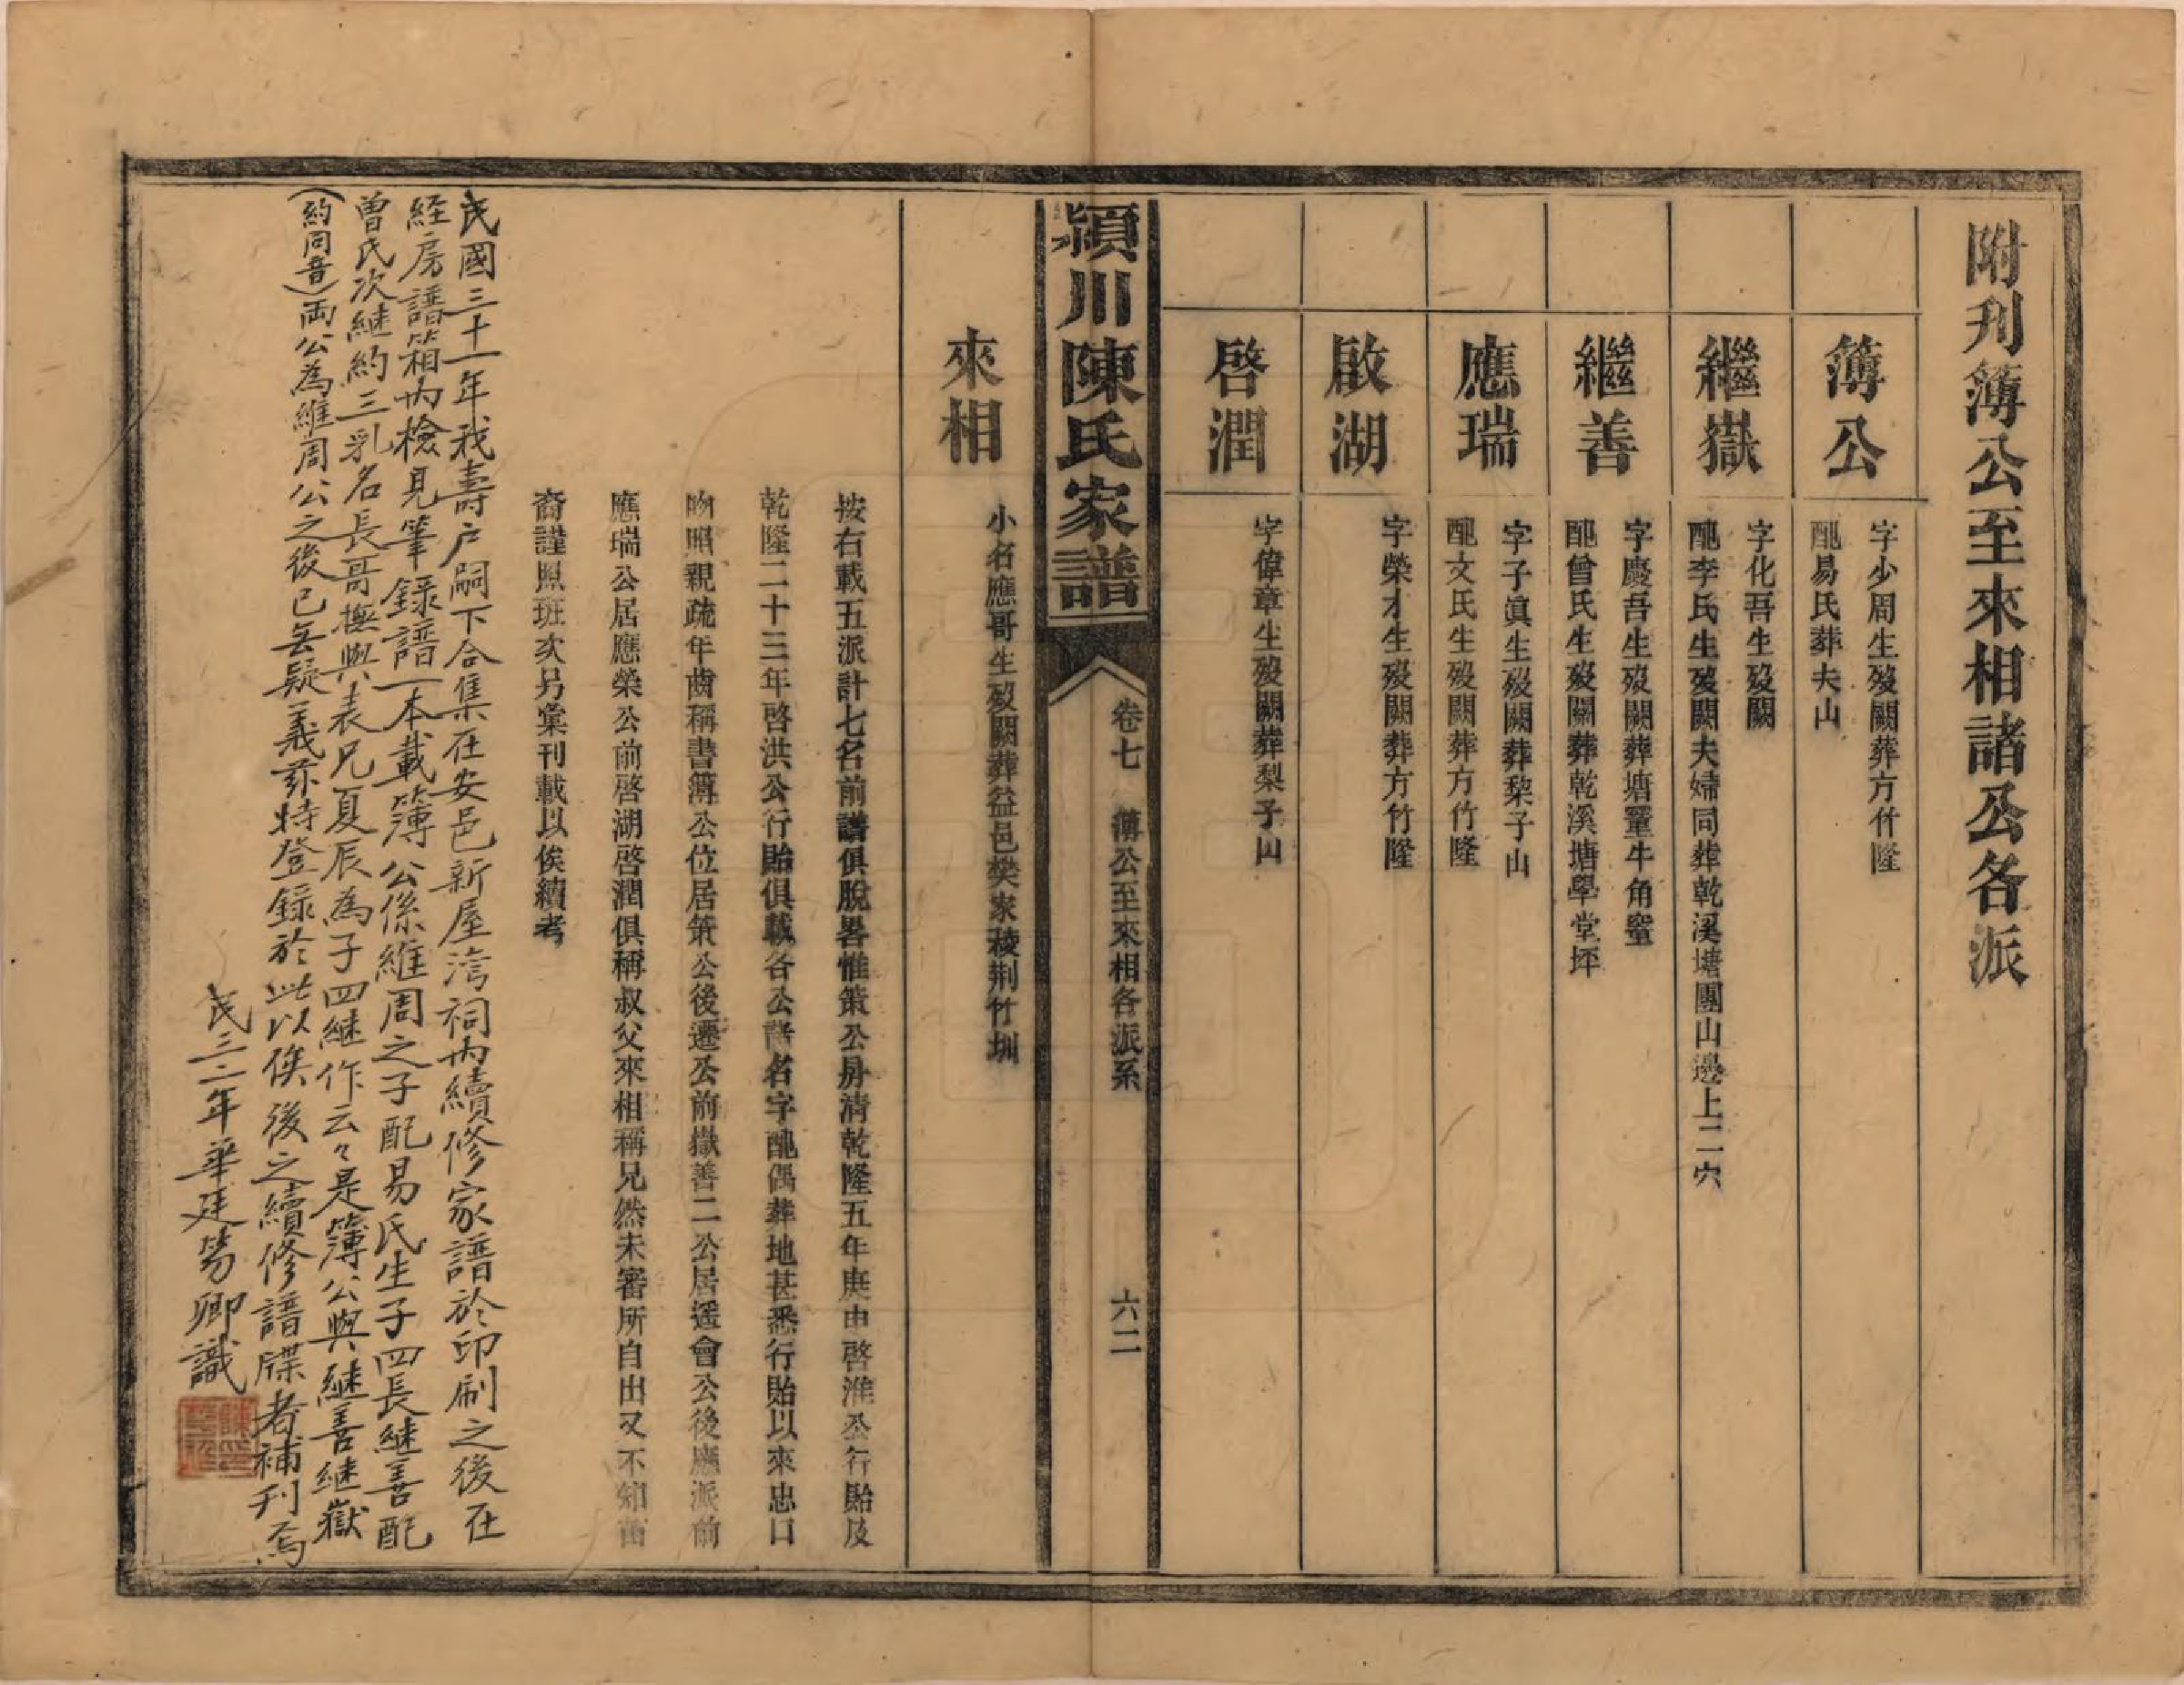 附刋簿公至來相諸公各派
簿公
字少周生歿闕葬方竹隆
配易氏葬夫山
繼嶽
字化吾生歿闕
配李氏生歿闕夫婦同葬乾溪塘團山邊上二穴
繼善
字慶吾生歿闕葬塘壟牛角窰
配曾氏生歿闕葬乾溪塘學堂坪
應瑞
字子眞生歿闕葬梨子山
配文氏生歿闕葬方竹隆
啟湖
字榮才生歿闕葬方竹隆
啓潤
字偉章生歿闕葬梨子山
潁川陳氏家譜
卷七
簿公至來相各派系
六二
來相
小名應哥生歿闕葬益邑樊家稜荆竹圳
按右載五派計七名前譜俱脫畧惟策公房清乾隆五年庚申啓淮公行貽及
乾隆二十三年啓洪公行貽俱載各公諱名字配偶葬地甚悉行貽以來忠口
吻照親疏年齒稱書簿公位居策公後遷公前嶽善二公居遥會公後應派前
應瑞公居應榮公前啓湖啓潤俱稱叔父來相稱兄然未審所自出又不知苗
裔謹照班次另彙刊載以俟續考
民國三十一年我壽户嗣下合集在安邑新屋湾祠内續修家譜於印刷之後在
経房譜箱内檢見筆錄譜一本載簿公係維周之子配易氏生子四長継善配
曾氏次継約三乳名長哥撫與表兄夏辰為子四継作云々是簿公與継善継嶽
(約同音)両公為維周公之後已無疑義茲特登録於此以俟後之續修譜牒者補刊焉
民三二年華廷笏卿識